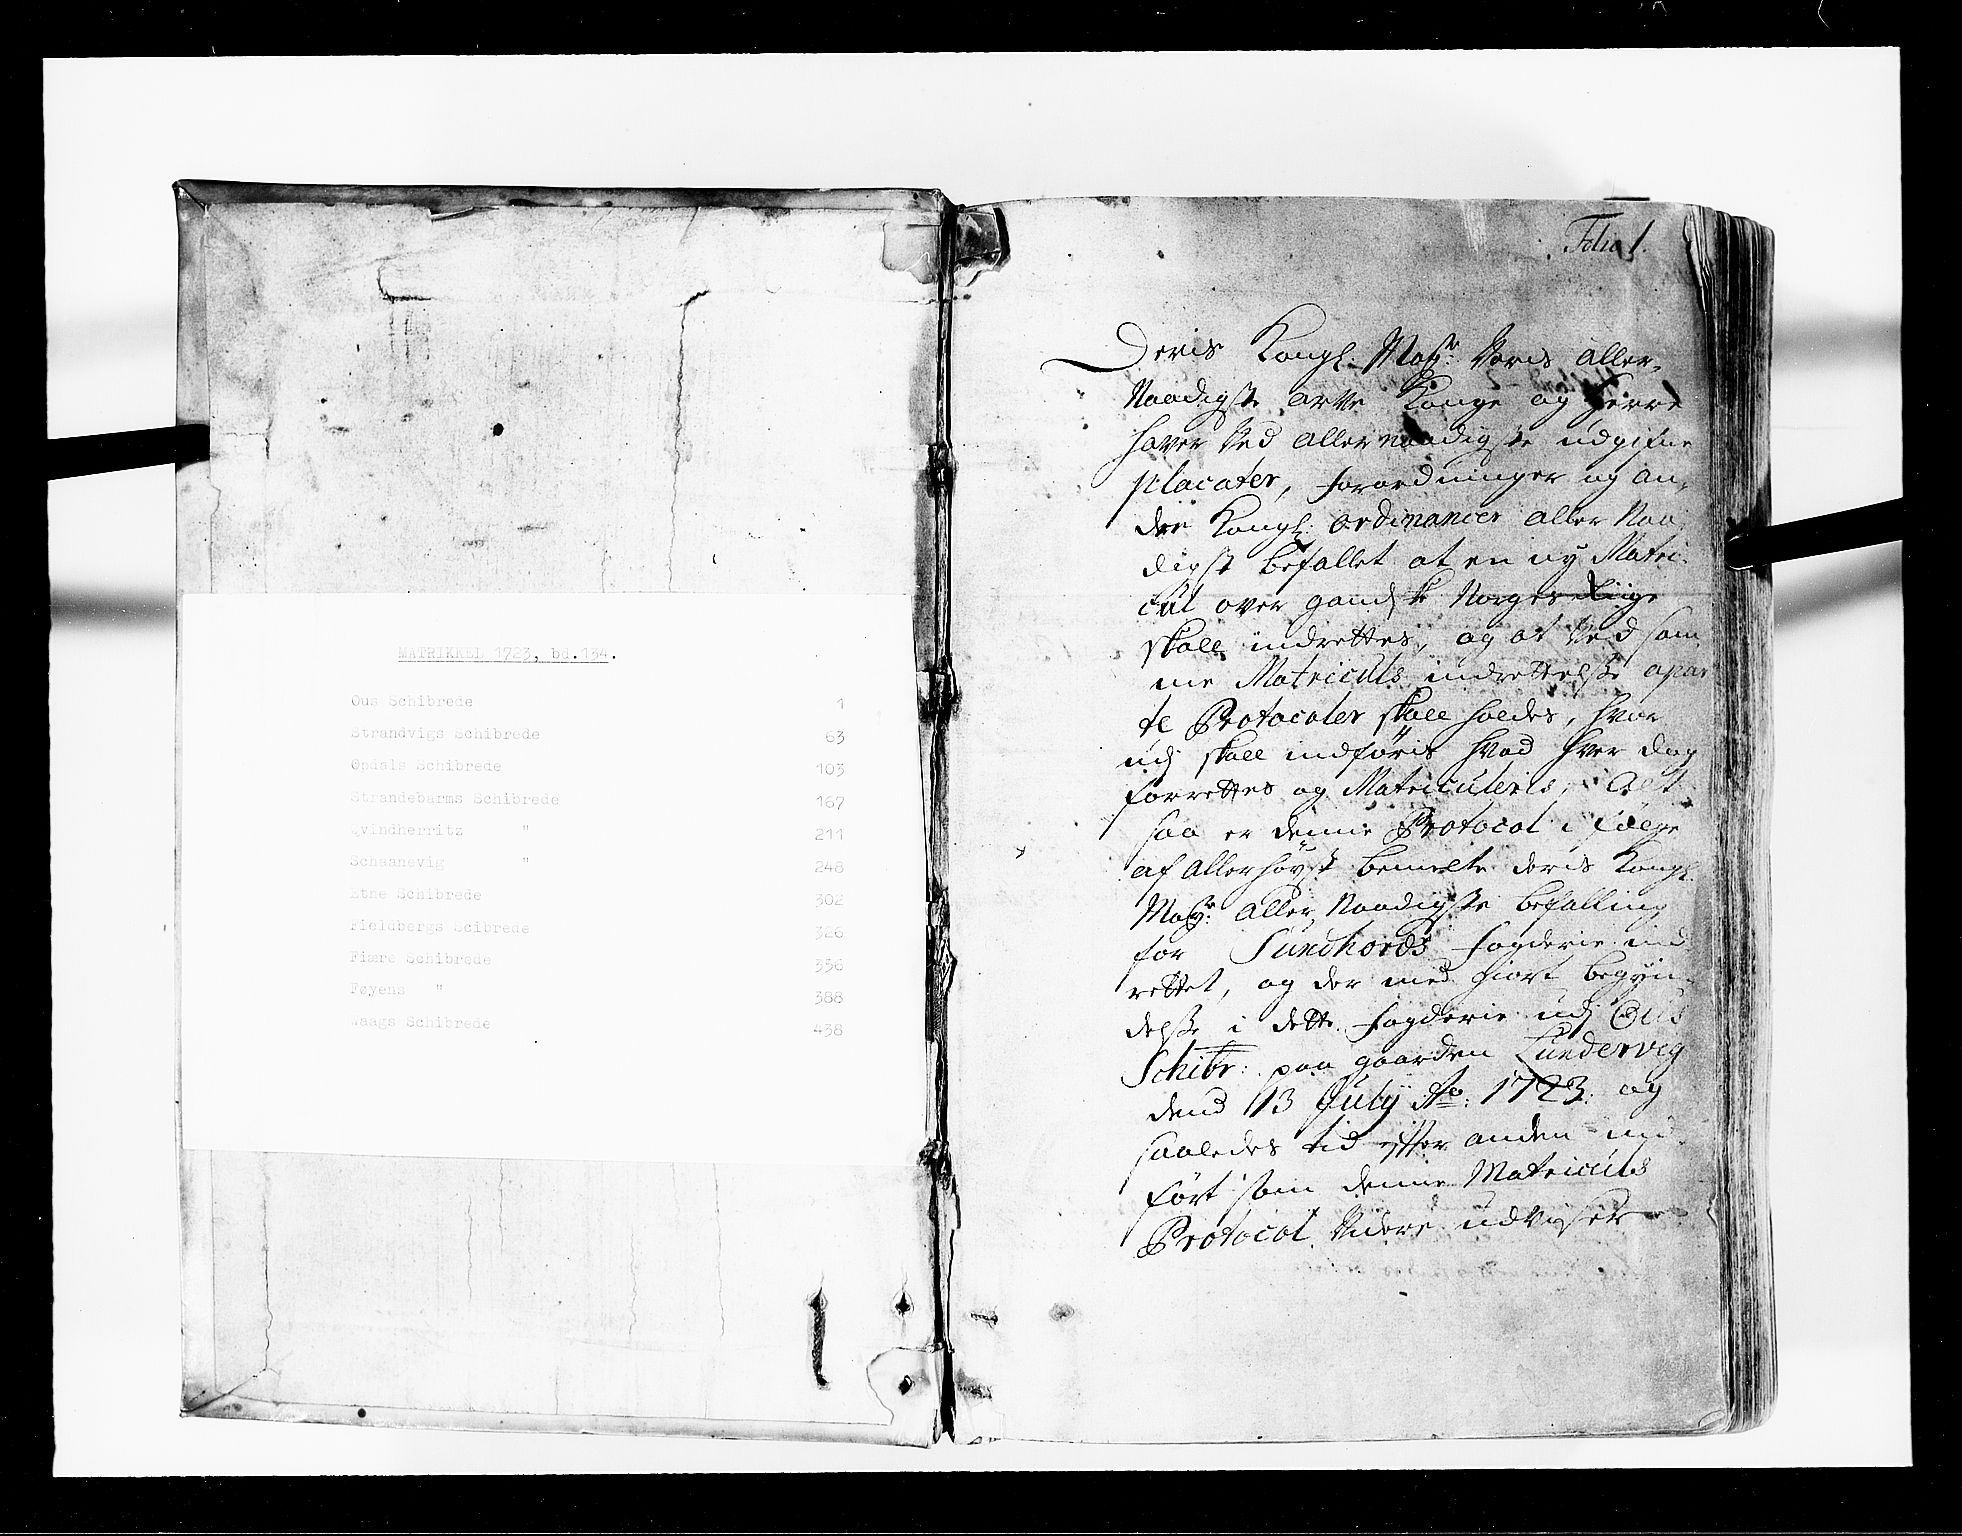 MATRIKKEL 1723, bd.134.
Ous Schibrede 1
Strandvigs Schibrede 63
Opdals Schibrede 103
Strandebarms Schibrede 167
Qvindherritz " 211
Schaanevig " 248
Etne Schibrede 302
Fieldbergs Scibrede 326
Fiære Schibrede 356
Føyens " 388
Waags Schibrede 438
Folio 1.
Deris Kongl: Mayts: Voris aller,
Naadigste arve Konge og Herre
haver Ved allernaadigste udgifne
placater, forordninger og an,
dre Kongl: ordinancer aller Naa
digst befallet at en ny Matri-
cul over gandske Norges Riige
skall indrettes, og at Ved sam
me Matriculs indrettelsse apar
te Protocoler skall holdes, hvor
udj skall indføris hvad hver dag
forrettes og Matriculeris, Alt
saa er denne Protocol i følge
af allerhøyst bemelte deris Kongl:
Mayts: aller Naadigste befalling
for Sundhords fogderie ind
rettet, og der med giort begyn-
delsse i dette fogderie udj Ous
Schibr: paa gaarden Lundervig
dend 13 July Ao: 1723. og
saaledes tid effter anden ind
ført som denne Matriculs
Protocol Videre udviser